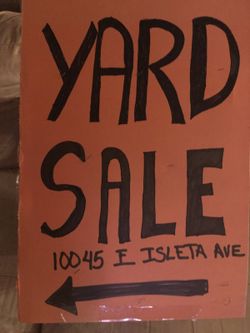 YARD
SALE
10045 E ISLETA AVE